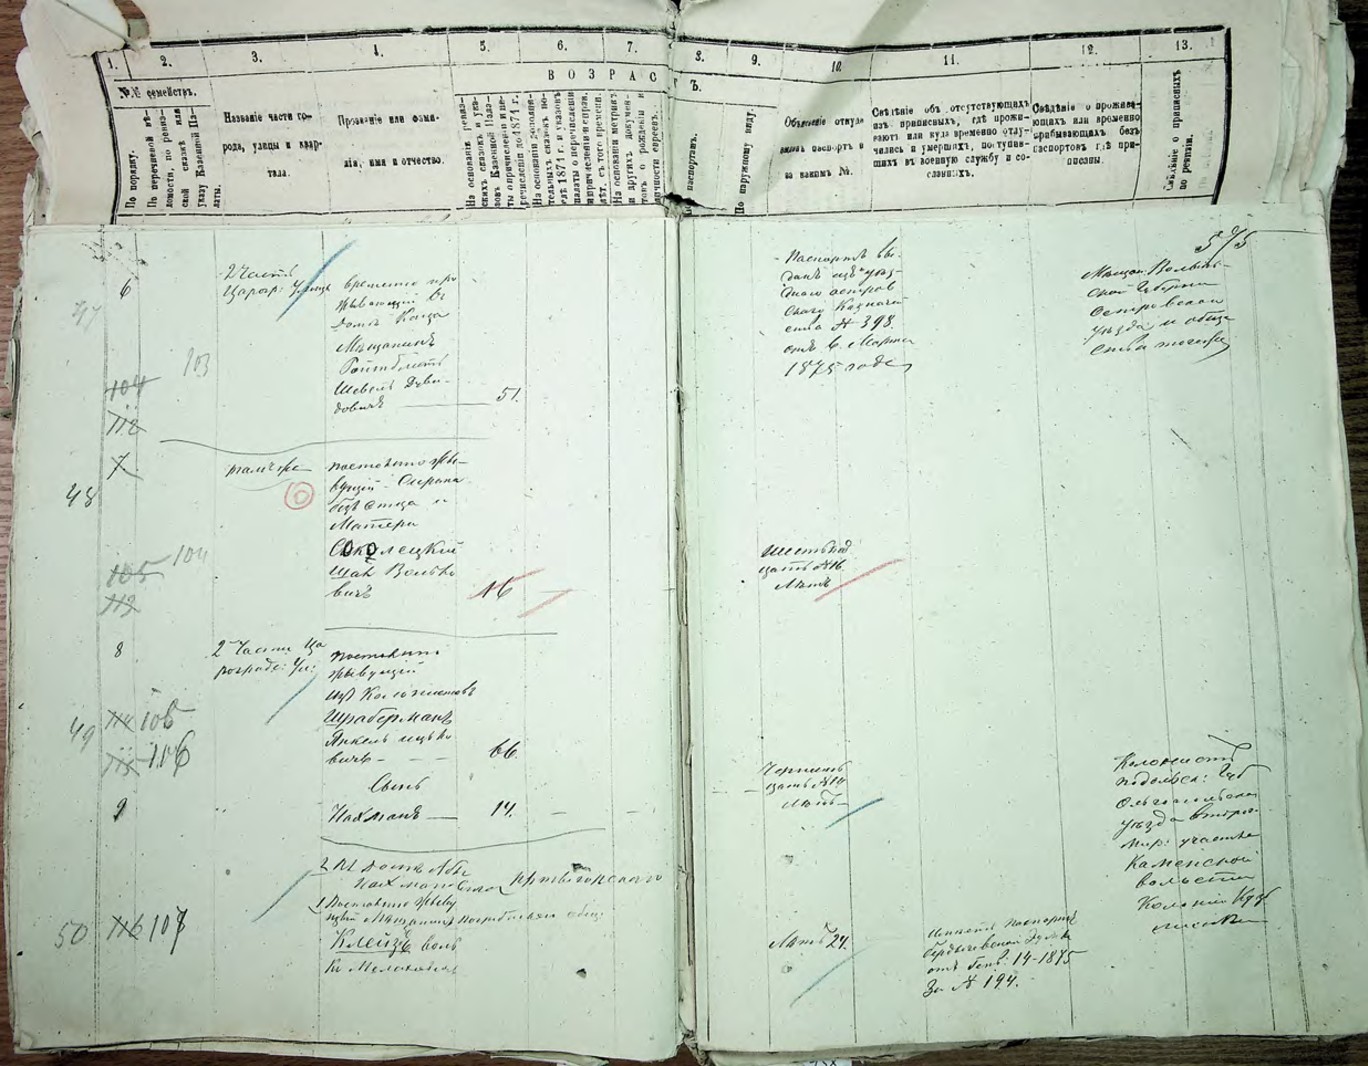 1.
2.
3.
4.
5.
6.
7.
8.
9.
10.
11.
12.
13.
ВОЗРАСТЪ.
№№ семействъ.
По порядку.
По перечневой вѣ-
домости, по ревиз-
ской сказкѣ или
указу Казенной Па-
латы.
Названіе части го-
рода, улицы и квар-
тала.
Прозваніе или фами-
лія, имя и отчество.
На основаніи ревиз-
скихъ сказокъ и ука-
зовъ Казенной Пала-
ты о причисленіи и пе-
речисленіи до 1871 г.
На основаніи дополни-
тельныхъ сказокъ по-
слѣ 1871 г. и указовъ
палаты о перечисленіи
На основаніи метрик.
и другихъ докумен-
товъ о рожденіи и
личности евреевъ.
паспортамъ.
По наружному виду.
Объясненіе откуда
выданъ паспортъ и
за какимъ №.
Свѣдѣніе объ отсутствующихъ
изъ приписныхъ, гдѣ прожи-
ваютъ или куда временно отлу-
чились и умершихъ, поступив-
шихъ въ военную службу и со-
сланныхъ.
Свѣдѣніе о прожива-
ющихъ или временно
прибывающихъ безъ
паспортовъ гдѣ при-
писаны.
Свѣдѣніе о приписныхъ
по ревизіи.
575
6
47
103
104
112
2 Часть
Царогр: Улица
временно про
живающій въ
домѣ
Мѣщанинъ
Ройтблатъ
Шевель Дуви-
довичъ
51.
Паспортъ вы-
данъ изъ уѣзд-
наго остров
скаго Казначей
ства № 398.
отъ 6. Марта
1875 года
Мѣщан: Волын-
ской Губерніи
Островскаго
уѣзда и обще
ства
7
48
104
105
113
тамъ же
постоянно жи-
вущій Сирота
безъ отца и
Матери
Соколецкій
Шая Волько
вичъ
16
Шестнад
цать №16
Лѣтъ
8
49
114 105
115 106
2 Части Ца
роград: Ул:
постоянно
живущій
изъ Колонистовъ
Шраберманъ
Янкель Ицько
вичъ
66.
Сынъ
9
Нахманъ
14.
Четыр
цать №14
Лѣтъ
Колонистъ
подольск: Губ
Ольгопольскаго
уѣзда второго
мир: участка
Каменской
волости
Колоніи
50
116 107
2 въ домѣ Абы
1 Постоянно живу
щій Мѣщанинъ Погребищен общ:
Клейзъ воль
Лѣтъ 24.
Имѣетъ паспортъ
Бердичевской Думы
отъ Генв: 14-1875
За № 194.